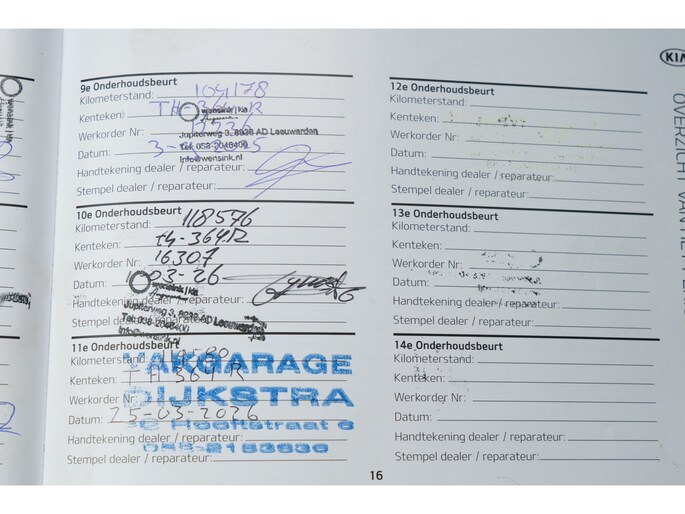 9e Onderhoudsbeurt
Kilometerstand: 104178
Kenteken: TH-364-R
wensink | kia
Werkorder Nr:
Jupiterweg 3, 8938 AD Leeuwarden
Datum:
Tel: 058-2048400
info@wensink.nl
Handtekening dealer / reparateur:
Stempel dealer / reparateur:
10e Onderhoudsbeurt
Kilometerstand: 118576
Kenteken: TH-364-R
Werkorder Nr: 16307
Datum: 03-26
wensink | kia
Handtekening dealer / reparateur:
Jupiterweg 3, 8938 AD Leeuwarden
Tel: 058-2048400
Stempel dealer / reparateur:
info@wensink.nl
11e Onderhoudsbeurt
Kilometerstand:
VAKGARAGE
Kenteken: TH 364 R
Werkorder Nr:
DIJKSTRA
Datum: 25-03-2026
PC Hooftstraat 6
Handtekening dealer / reparateur:
058-2153636
Stempel dealer / reparateur:
12e Onderhoudsbeurt
Kilometerstand:
Kenteken:
Werkorder Nr:
Datum:
Handtekening dealer / reparateur:
Stempel dealer / reparateur:
13e Onderhoudsbeurt
Kilometerstand:
Kenteken:
Werkorder Nr:
Datum:
Handtekening dealer / reparateur:
Stempel dealer / reparateur:
14e Onderhoudsbeurt
Kilometerstand:
Kenteken:
Werkorder Nr:
Datum:
Handtekening dealer / reparateur:
Stempel dealer / reparateur:
16
KIA
OVERZICHT VAN HET